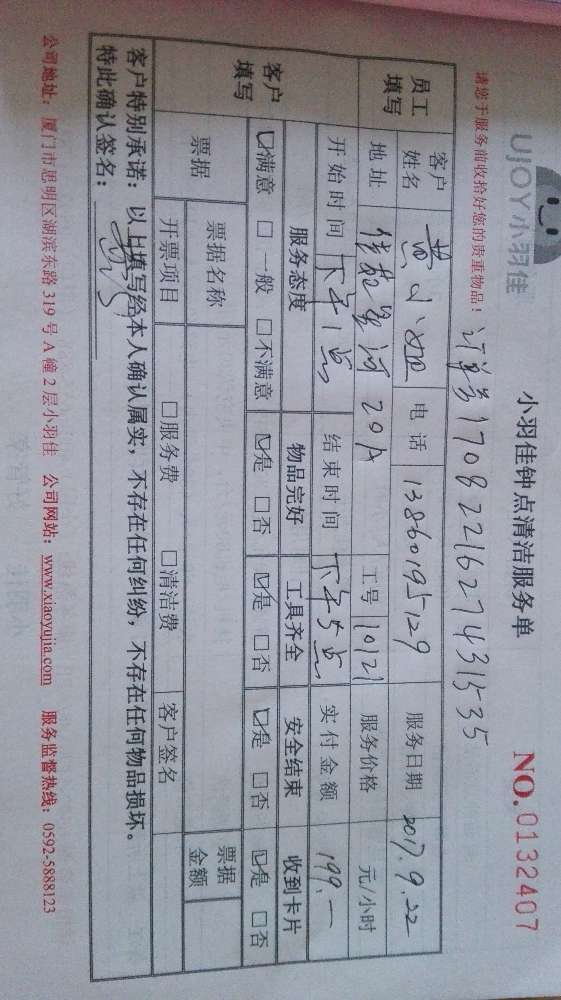 UJOY小羽佳
小羽佳钟点清洁服务单
NO.0132407
请您于服务前收拾好您的贵重物品！
订单号17082216274315 35
员工填写 客户姓名 黄小姐 电话 13860195129 服务日期 2017.9.22
地址 29A 工号 10121 服务价格 元/小时
开始时间 下午1点 结束时间 下午5点 实付金额 199.一
客户填写 服务态度 物品完好 工具齐全 安全结束 收到卡片
☑满意 □一般 □不满意 ☑是 □否 ☑是 □否 ☑是 □否 ☑是 □否
票据 票据名称 票据金额
开票项目 □服务费 □清洁费 客户签名
客户特别承诺：以上填写经本人确认属实，不存在任何纠纷，不存在任何物品损坏。
特此确认签名：
公司地址：厦门市思明区湖滨东路319号A幢2层小羽佳 公司网站：www.xiaoyujia.com 服务监督热线：0592-5888123